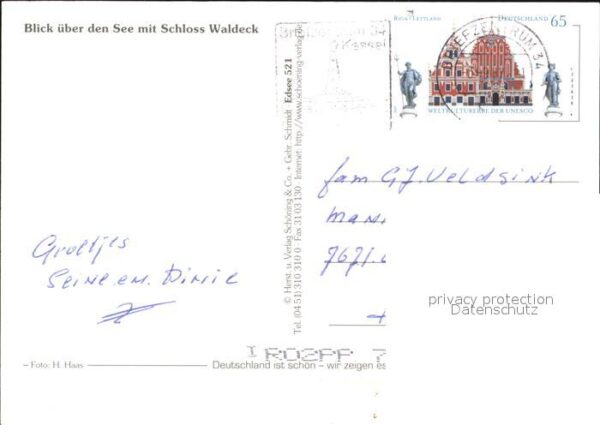 Blick über den See mit Schloss Waldeck
Briefzentrum 34
RIGA · LETTLAND
DEUTSCHLAND 65
BRIEFZENTRUM 34
WELTKULTURERBE DER UNESCO
© Herst. u. Verlag Schöning & Co. + Gebr. Schmidt Edsee 521
Tel. (04 51) 310 310 0 · Fax 31 03 130 · Internet: http://www.schoening-verlag.de
fam GJ. Veldsink
7671
Groetjes
– Foto: H. Haas
Deutschland ist schön – wir zeigen es
privacy protection
Datenschutz